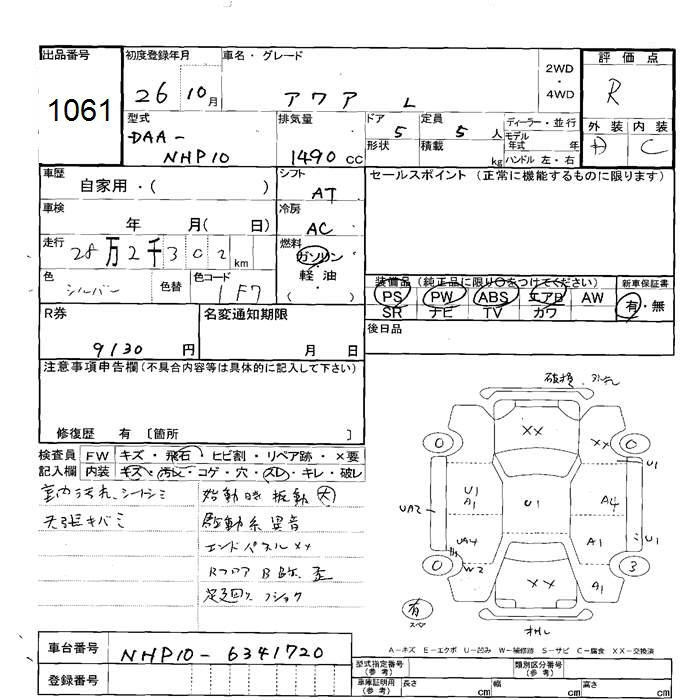 出品番号
1061
初度登録年月
26 10月
車名・グレード
アクア L
2WD
・
4WD
評価点
R
外装 内装
C
型式
DAA-
NHP10
排気量
1490 cc
ドア
5
定員
5 人
形状
積載
kg
ディーラー・並行
モデル
年式 年
ハンドル 左・右
車歴
自家用・( )
シフト
AT
セールスポイント (正常に機能するものに限ります)
車検
年 月( 日)
冷房
AC
走行
28万2千302km
燃料
ガソリン
軽油
( )
色
シルバー
色替
色コード
1F7
装備品 (純正品に限り○をつけてください)
PS PW ABS エアB AW
SR ナビ TV カワ
新車保証書
有・無
R券
9130 円
名変通知期限
月 日
後日品
注意事項申告欄(不具合内容等は具体的に記入して下さい)
修復歴 有 〔箇所 〕
検査員
記入欄
FW キズ・飛石・ヒビ割・リペア跡・×要
内装 キズ・汚れ・コゲ・穴・スレ・キレ・破レ
室内汚れ、シートシミ
天張キバミ
始動時振動大
駆動系異音
エンドパネルXX
Rフロア B 歪
XX
XX
U1
UA2
U1
A1
U1
A4
UA4
W2
A1
U1
A1
XX
3
有
スペア
A-キズ E-エクボ U-凹み W-補修跡 S-サビ C-腐食 XX-交換済
車台番号
NHP10-6341720
登録番号
型式指定番号
(参考)
類別区分番号
(参考)
車庫証明用
(参考)
長さ cm
幅 cm
高さ cm